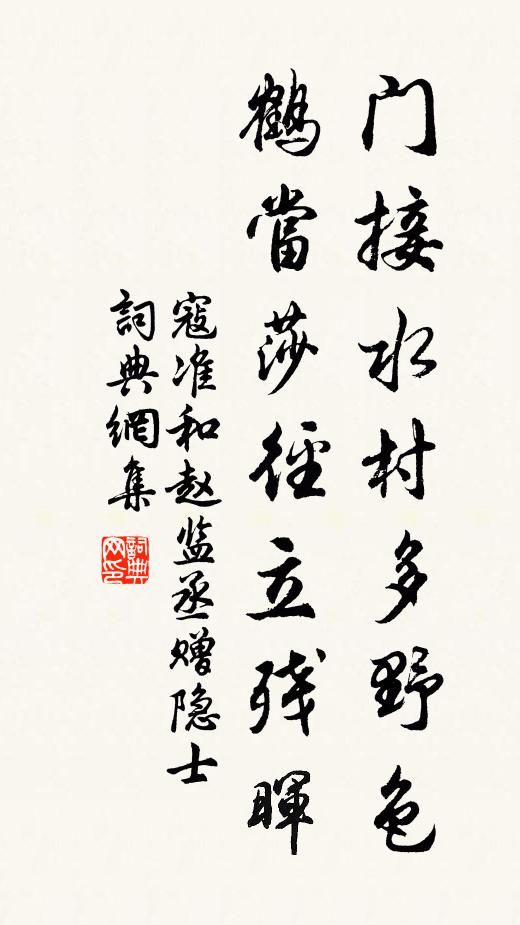 门接水村多野色
鹤當莎徑立残暉
寇准和赵监丞赠隐士
詞典網集
詞典网印